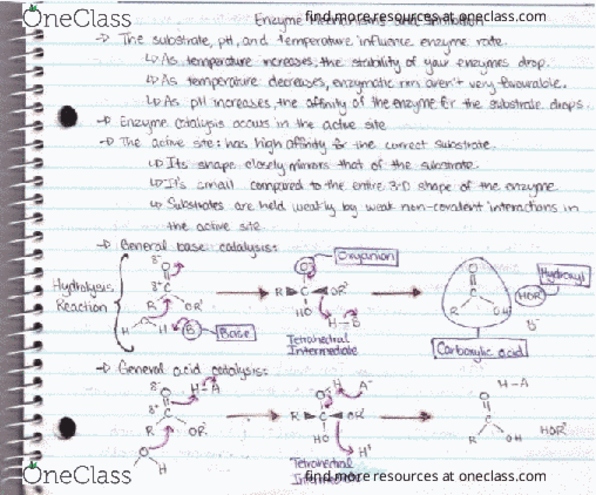 OneClass
find more resources at oneclass.com
Enzyme Mechanisms and Inhibition
→ The substrate, pH, and temperature influence enzyme rate.
↳ As temperature increases, the stability of your enzymes drop.
↳ As temperature decreases, enzymatic rxn aren't very favourable.
↳ As pH increases, the affinity of the enzyme for the substrate drops.
→ Enzyme catalysis occurs in the active site
→ The active site: has high affinity for the correct substrate.
↳ Its shape closely mirrors that of the substrate.
↳ It's small compared to the entire 3-D shape of the enzyme
↳ Substrates are held weakly by weak non-covalent interactions in
the active site
→ General base catalysis:
Oxyanion
Hydrolysis
Reaction
R
OR'
H
H
B
Base
O
R
C
OR'
HO
H-B
Tetrahedral
Intermediate
O
C
R
OH
Carboxylic acid
HOR'
Hydroxyl
→ General acid catalysis:
H-A
O
C
R
OR'
O
H
H
A⁻
R
C
OR'
HO
Tetrahedral
O
C
R
OH
H-A
HOR'
OneClass
find more resources at oneclass.com